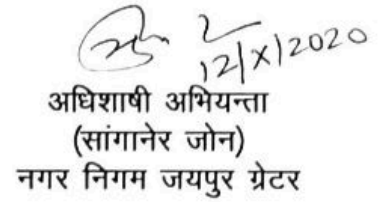 12/X/2020
अधिशाषी अभियन्ता
(सांगानेर जोन)
नगर निगम जयपुर ग्रेटर